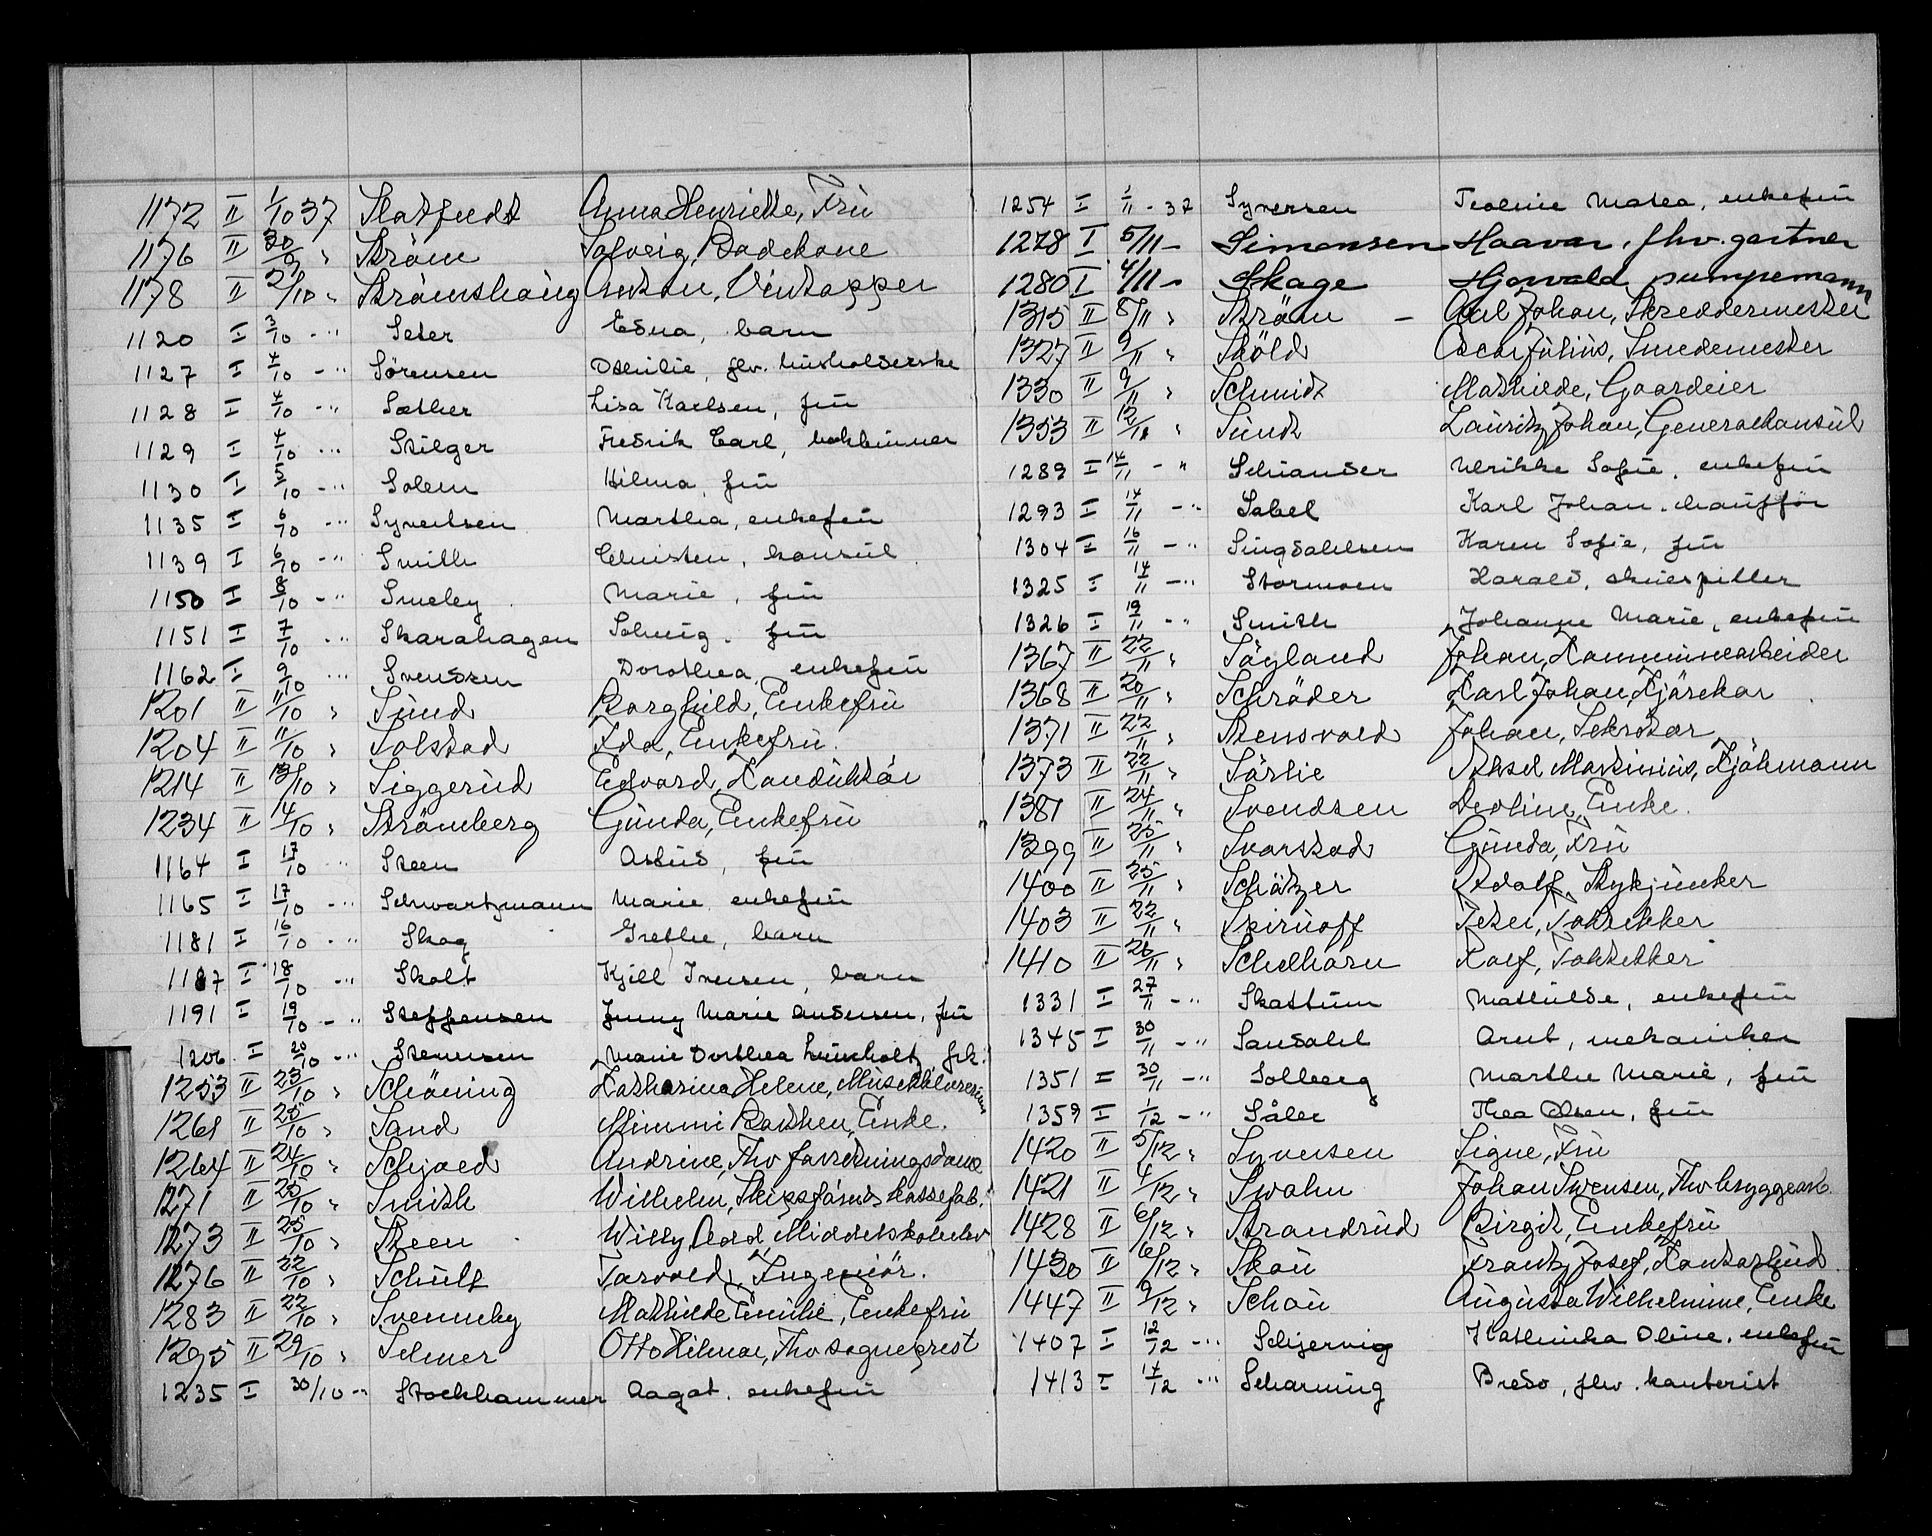 1172 II 1/10 37 Statfeldt Anna Henriette, Fru
1176 II 30/9 " Strøm Solveig, Badekone
1178 II 2/10 " Strømshaug Anton, Vintapper
1120 I 3/10 - " Seter Edna, barn
1127 I 4/10 - " Sørensen Othilie, fhv. husholderske
1128 I 4/10 - " Sæther Lisa Karlsen, fru
1129 I 4/10 - " Stilger Fredrik Carl, bokbinner
1130 I 5/10 - " Solem Hilma, fru
1135 I 6/10 - " Syvertsen Martha, enkefru
1139 I 6/10 - " Smith Christen, konsul
1150 I 8/10 - " Smeby Marie, fru
1151 I 7/10 - " Skarahagen Solveig, fru
1162 I 9/10 - " Svenssen Dorothea, enkefru
1201 II 11/10 " Sund Borghild, Enkefru
1204 II 11/10 " Solstad Ida, Enkefru.
1214 II 13/10 " Siggerud Edvard, Konduktør
1234 II 14/10 " Strømberg Gunda, Enkefru
1164 I 17/10 - " Steen Astrid, fru
1165 I 17/10 - " Schwartzmann Marie, enkefru
1181 I 16/10 - " Skog Grethe, barn
1187 I 18/10 - " Skolt Kjell Iversen, barn
1191 I 19/10 - " Steffensen Jenny Marie Andersen, fru
1206 I 20/10 - " Stenersen Marie Dorthea frk.
1253 II 23/10 " Schøning Katharina Helene,
1261 II 25/10 " Sand Mimmi Bathen, Enke.
1264 II 24/10 " Schjoed Andrine, Fhv forretningsdame
1271 II 25/10 " Smith Wilhelm,
1273 II 25/10 " Steen Willy Aord, Middelskoleelev
1276 II 22/10 " Schulz Torvald, Ingeniör.
1283 II 22/10 " Svenneby Mathilde Emilie, Enkefru
1295 II 29/10 " Selmer Otto Hilmar, Fhv sogneprest
1235 I 30/10 - " Stockhammer Aagot, enkefru
1254 I 1/11 - 37 Syversen Teoline Matea, enkefru
1278 I 5/11 - Simonsen Haavar, fhv. gartner
1280 I 4/11 - Skage Hjovald pumpemann
1315 II 8/11 " Strøm - Carl Johan, Skreddermester
1327 II 9/11 " Sköld Oscar Julius, Smedemester
1330 II 9/11 " Schmidt Mathilde, Gaardeier
1353 II 12/11 " Sundt Lauritz Johan, Generalkonsul
1289 I 14/11 - " Schiander Ulrikke Sofie, enkefru
1293 I 14/11 - " Sabel Karl Johan, chauffør
1304 I 16/11 - " Singdahlsen Karen Sofie, fru
1325 I 14/11 - " Stormoen Harald, skuespiller
1326 I 19/11 - " Smith Johanne Marie, enkefru
1367 II 22/11 " Søyland Johan, Kommunearbeider
1368 II 20/11 " Schrøder Karl Johan, Kjørekar
1371 II 22/11 " Stensvold Johan, Sekretær
1373 II 22/11 " Sørlie Aksel Martinius, Kjøbmann
1381 II 24/11 " Svendsen Deoline, Enke.
1399 II 25/11 " Svarstad Gunda, Fru
1400 II 25/11 " Schätzer Adolf, Stykjunker
1403 II 22/11 " Spiruoff Peter,
1410 II 26/11 " Schelhorn Rolf,
1331 I 27/11 - " Skattum Mathilde, enkefru
1345 I 30/11 - " Sandahl Arnt, mekaniker
1351 I 30/11 - " Solberg Marthe Marie, fru
1359 I 1/12 - " Såler Thea Olsen, fru
1420 II 5/12 " Syversen Signe, Fru
1421 II 4/12 " Swahn Johan Swensen, Fhv bryggearb.
1428 II 6/12 " Strandrud Birgit, Enkefru
1430 II 6/12 " Skou Frantz Josef, Kontorbud
1447 II 9/12 " Schou Augusta Wilhelmine, Enke
1407 I 12/12 - " Schjervig Kathinka Oline, enkefru
1413 I 14/12 - " Scharning Bredo, fhv. kontorist